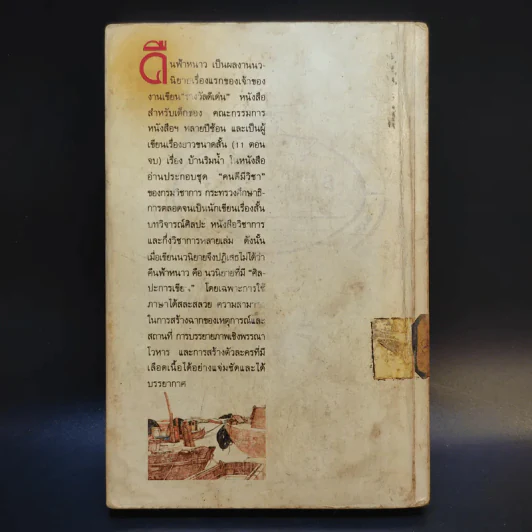 คืนฟ้าหนาว เป็นผลงานนว-
นิยายเรื่องแรกของเจ้าของ
งานเขียน "รางวัลดีเด่น" หนังสือ
สำหรับเด็กของ คณะกรรมการ
หนังสือฯ หลายปีซ้อน และเป็นผู้
เขียนเรื่องยาวขนาดสั้น (11 ตอน
จบ) เรื่อง บ้านริมน้ำ ในหนังสือ
อ่านประกอบชุด "คนดีมีวิชา"
ของกรมวิชาการ กระทรวงศึกษาธิ-
การตลอดจนเป็นนักเขียนเรื่องสั้น
บทวิจารณ์ศิลปะ หนังสือวิชาการ
และกึ่งวิชาการหลายเล่ม ดังนั้น
เมื่อเขียนนวนิยายจึงปฏิเสธไม่ได้ว่า
คืนฟ้าหนาว คือ นวนิยายที่มี "ศิล-
ปะการเขียน" โดยเฉพาะการใช้
ภาษาได้สละสลวย ความสามารถ
ในการสร้างฉากของเหตุการณ์และ
สถานที่ การบรรยายภาพเชิงพรรณา
โวหาร และการสร้างตัวละครที่มี
เลือดเนื้อได้อย่างแจ่มชัดและได้
บรรยากาศ